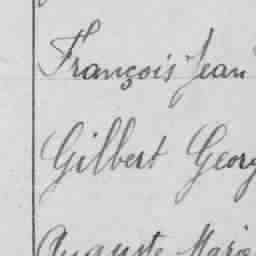 François Jean
Gilbert Georg
Auguste Marie